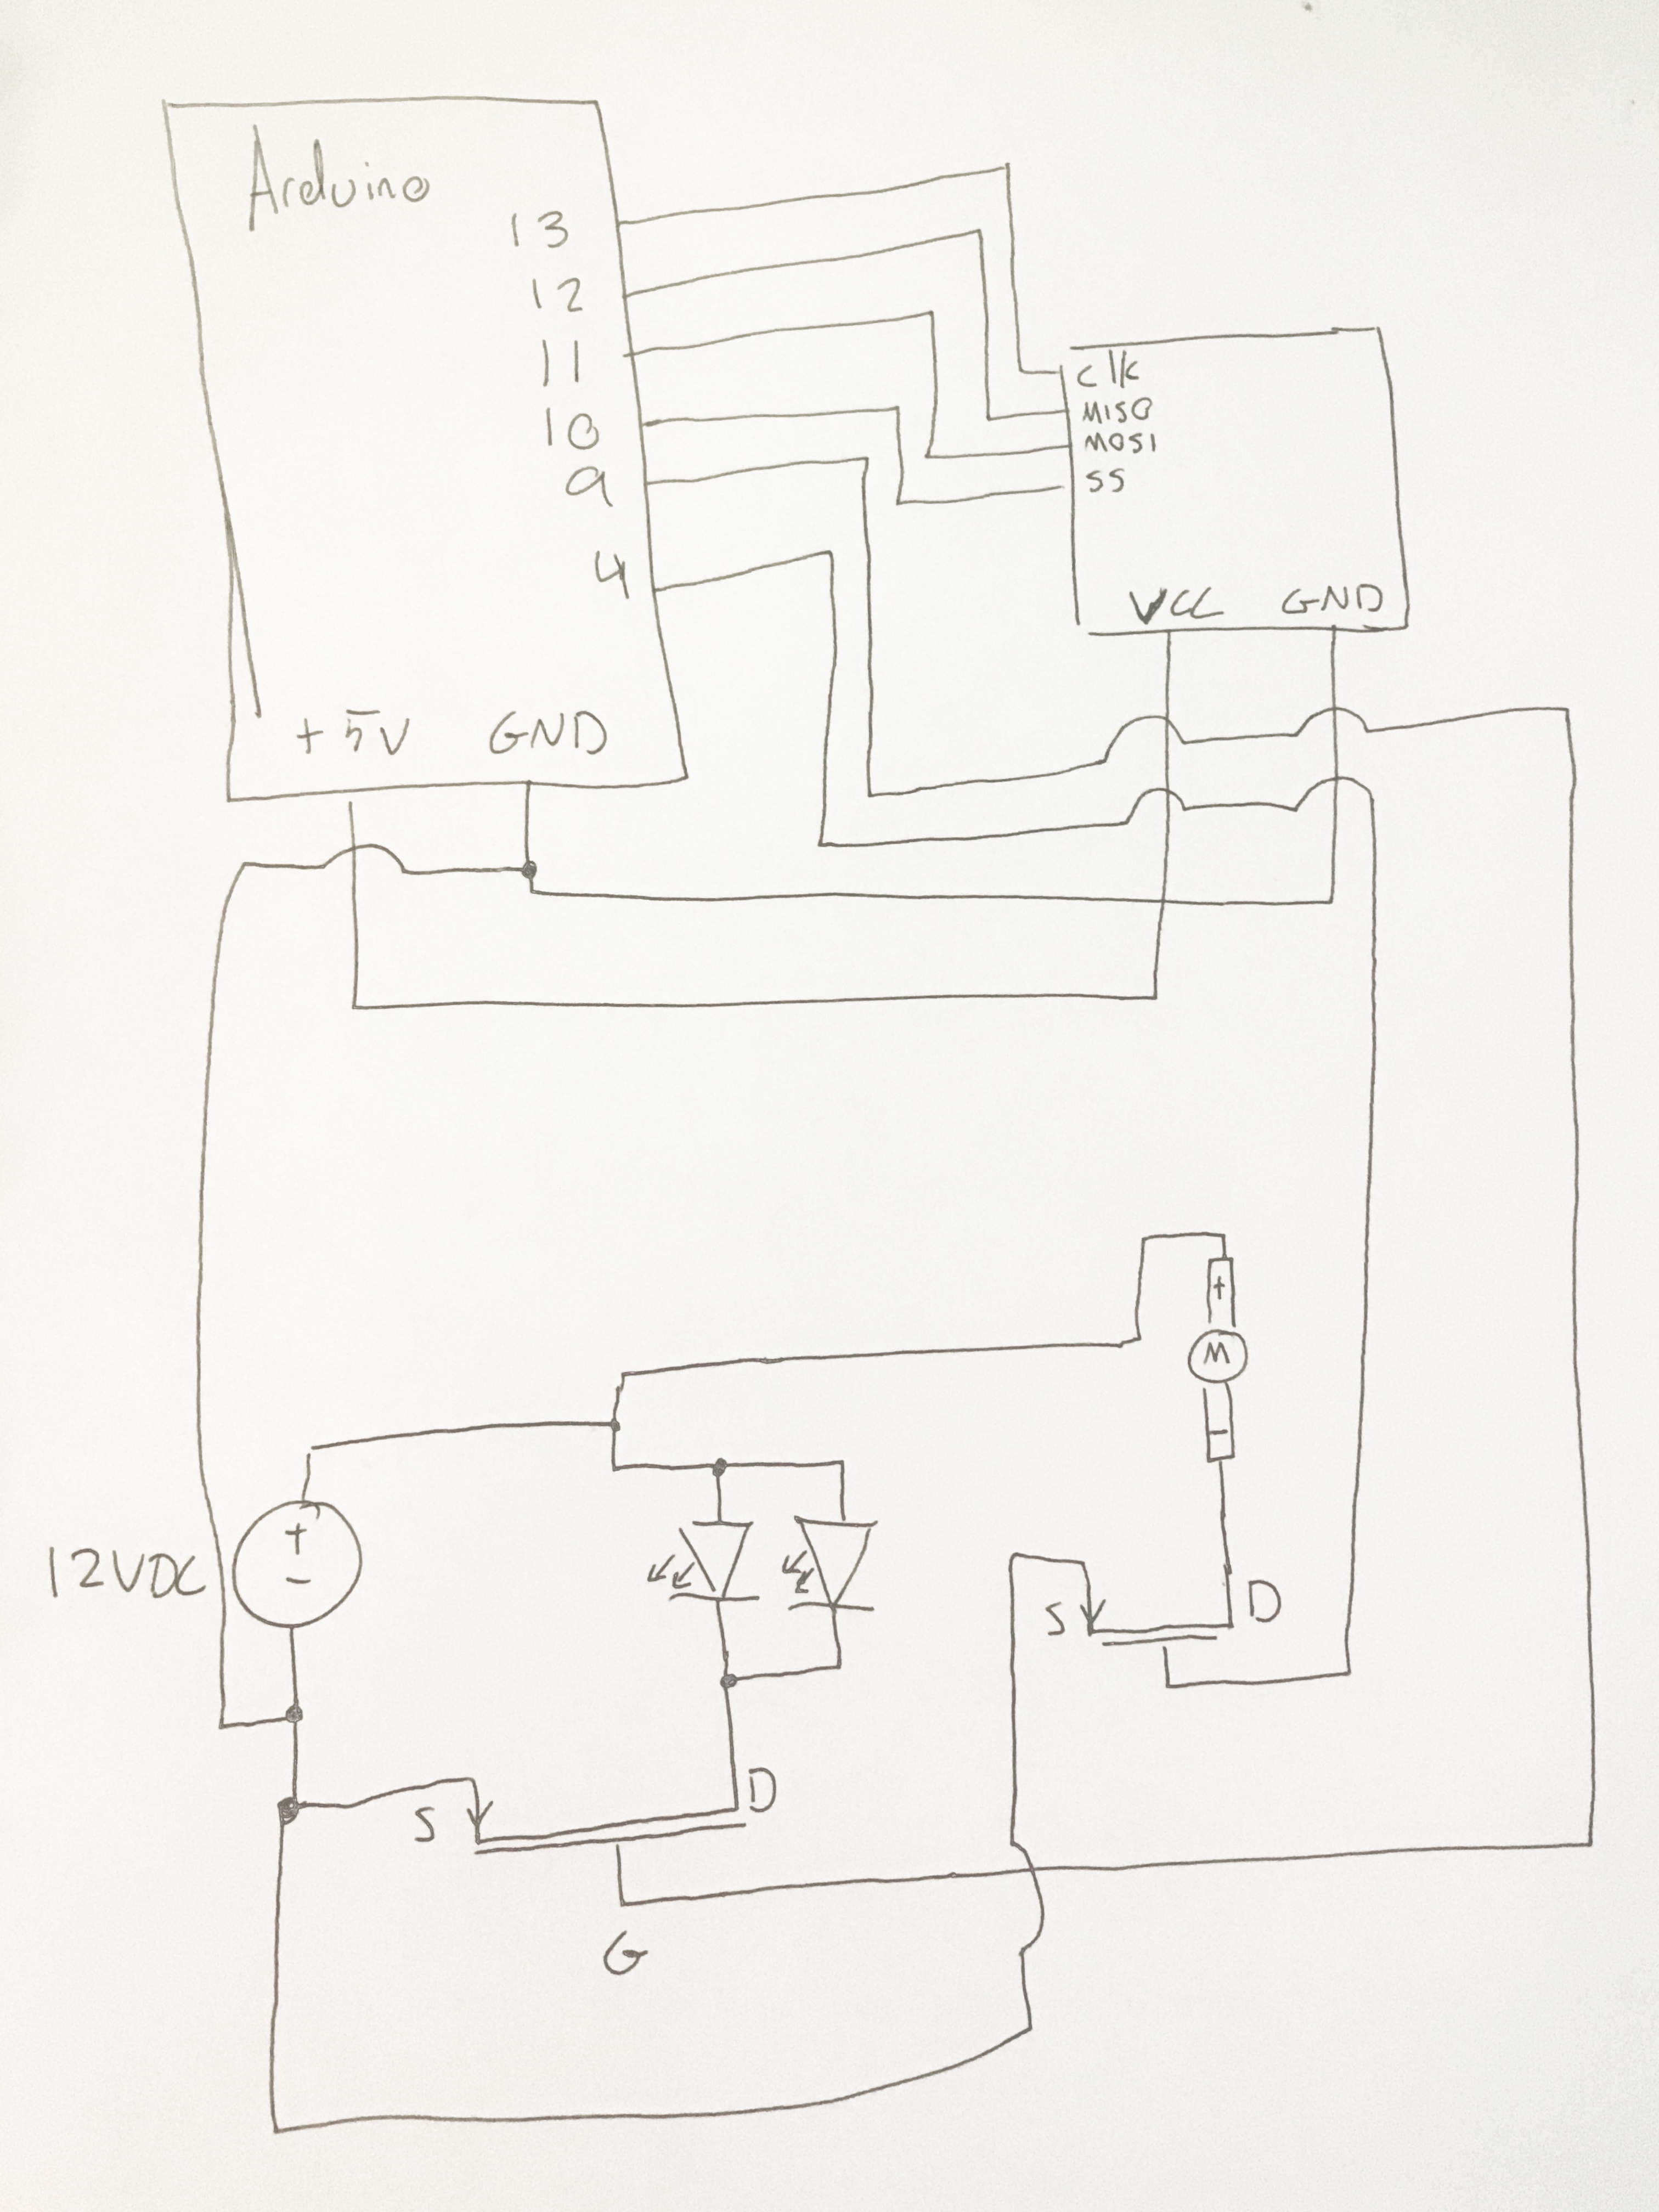 Arduino
13
12
11
10
9
4
+5V GND
clk
MISO
MOSI
SS
VCC GND
+
M
-
12VDC
+
-
S D
S D
G